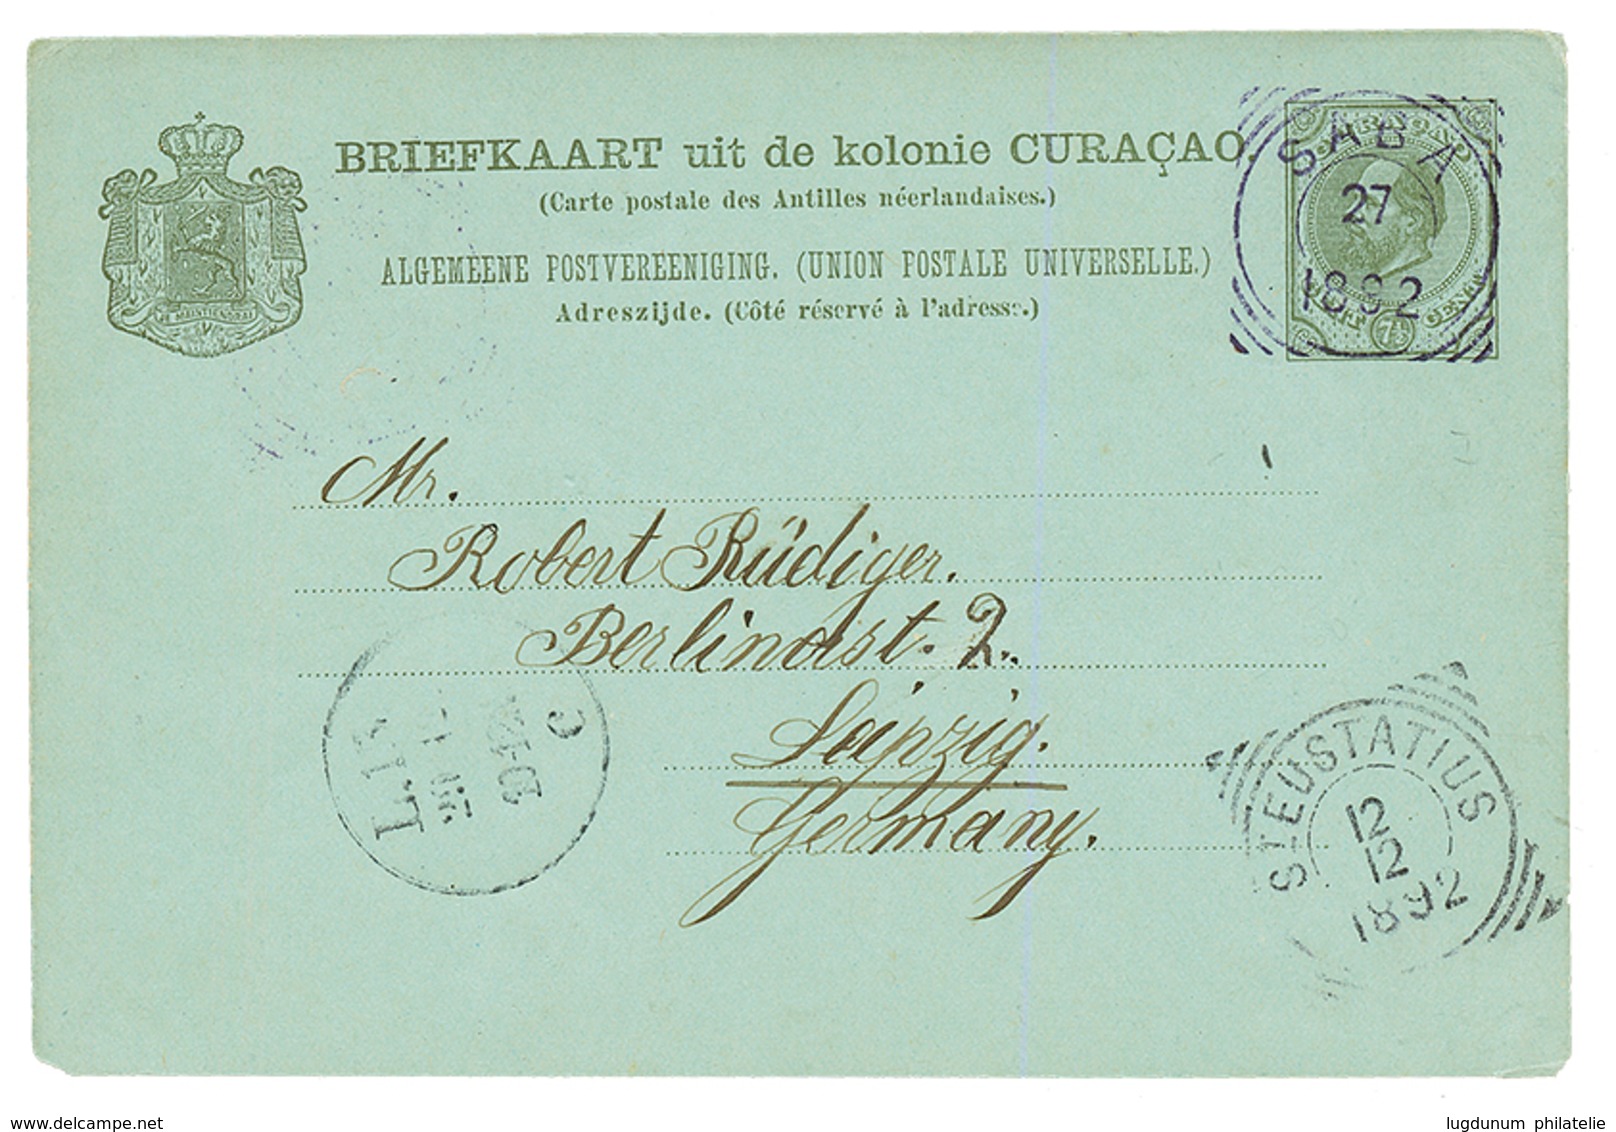 BRIEFKAART uit de kolonie CURAÇAO.
(Carte postale des Antilles néerlandaises.)
ALGEMEENE POSTVEREENIGING. (UNION POSTALE UNIVERSELLE.)
Adreszijde. (Côté réservé à l'adresse.)
JE MAINTIENDRAI
CURAÇAO
7½
SABA
27
1892
Mr.
Robert Rüdiger.
Berlinerst. 2.
Leipzig.
Germany.
ST EUSTATIUS
12
12
1892
delcampe.net
lugdunum philatelie